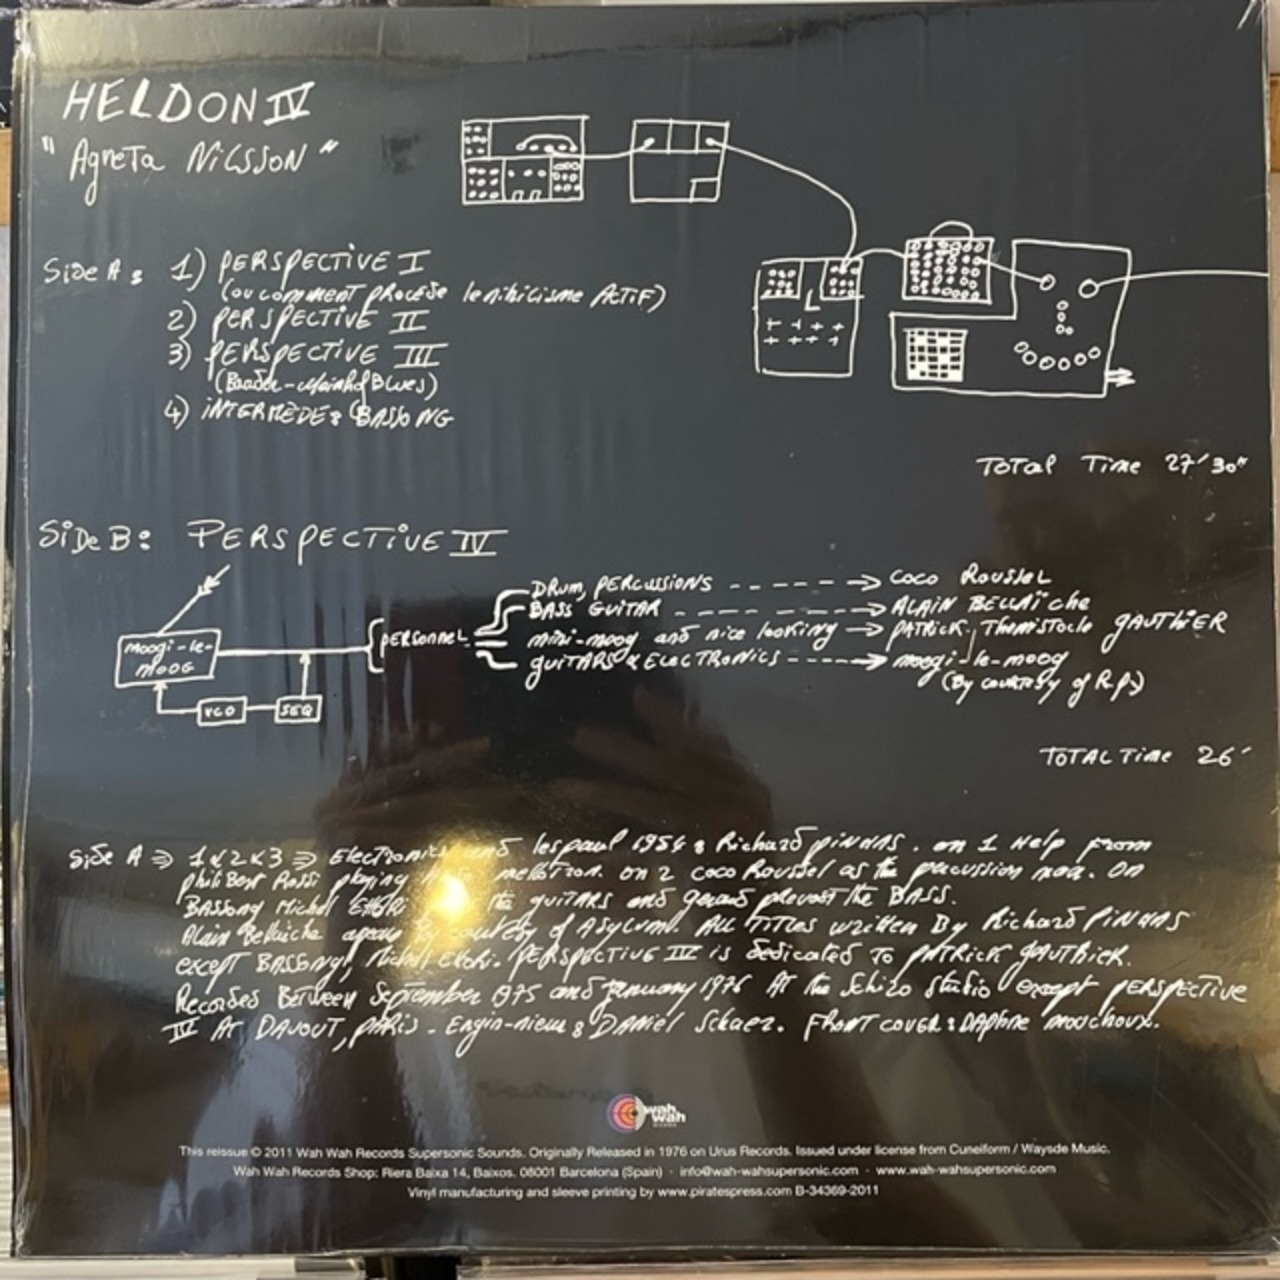 HELDON IV
"Agneta Nilsson"
Side A: 1) PERSPECTIVE I
(ou comment procède le nihilisme Actif)
2) PERSPECTIVE II
3) PERSPECTIVE III
(Baader-Meinhof Blues)
4) INTERMÈDE: BASSONG
Total Time 27'30"
Side B: PERSPECTIVE IV
Moogi-le-Moog
VCO
SEQ
PERSONNEL
DRUM, PERCUSSIONS ----> COCO ROUSSEL
BASS GUITAR ----> ALAIN BELLAÏCHE
mini-moog and nice looking -> PATRICK Themistocle GAUTHIER
GUITARS & ELECTRONICS ----> moogi-le-moog
(By courtesy of R.P.)
TOTAL Time 26'
Side A => 1 & 2 & 3 => Electronics and lespaul 1954: Richard PINHAS. on 1 Help from
philiBert Rossi playing mellotron. on 2 coco Roussel as the percussion man. On
BASSONG Michel Ettori the guitars and gerard prevost the BASS.
Alain Bellaiche By courtesy of Asylum. ALL Titles written By Richard PINHAS
except BASSONG, Michel Ettori. PERSPECTIVE IV is dedicated To PATRICK GAUTHIER.
Recorded Between September 1975 and January 1976 At the Schizo Studio except PERSPECTIVE
IV AT DAVOUT, PARIS. Engin-nieur: DANIEL . FRONT COVER: DAPHNE mouchoux.
wah wah
This reissue © 2011 Wah Wah Records Supersonic Sounds. Originally Released in 1976 on Urus Records. Issued under license from Cuneiform / Waysde Music.
Wah Wah Records Shop: Riera Baixa 14, Baixos. 08001 Barcelona (Spain) · info@wah-wahsupersonic.com · www.wah-wahsupersonic.com
Vinyl manufacturing and sleeve printing by www.piratespress.com B-34369-2011